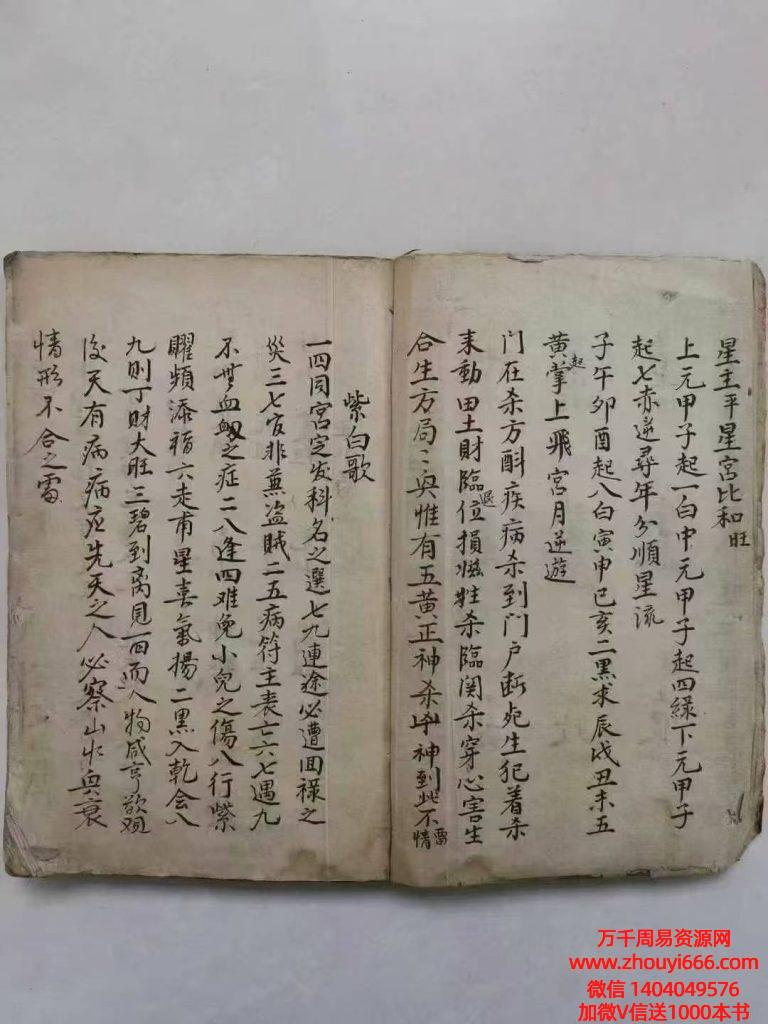 星主平星宮比和旺
上元甲子起一白中元甲子起四緑下元甲子
起七赤逆尋年分順星流
子午卯酉起八白寅申巳亥二黑求辰戌丑未五
黄起掌上飛宮月逆遊
門在杀方酙疾病杀到門户断死生犯着杀
来動田土財臨位退損滋牲杀臨関杀穿心害生
合生方局〻興惟有五黄正神杀凶神到此不雷情
紫白歌
一四同宮定发科名之選七九連途必遭回禄之
災三七官非兼盗賊二五病符主丧亡六七遇九
不無血之症二八逢四难免小兒之傷八行紫
曜頻添福六走甫星喜氣揚二黑入乾会八
九則丁財大旺三碧到离見一四而人物咸亨欲观
後天有病病在先天之人必察山水興衰
情形不合之雷
万千周易资源网
www.zhouyi666.com
微信 1404049576
加微V信送1000本书